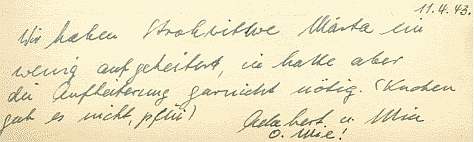 11.4.43.
Wir haben Strohwitwe Märta ein
wenig aufgeheitert, sie hatte aber
die Aufheiterung garnicht nötig. (Kuchen
gab es nicht, pfui)
Adalbert u. Mia
O. Wie!